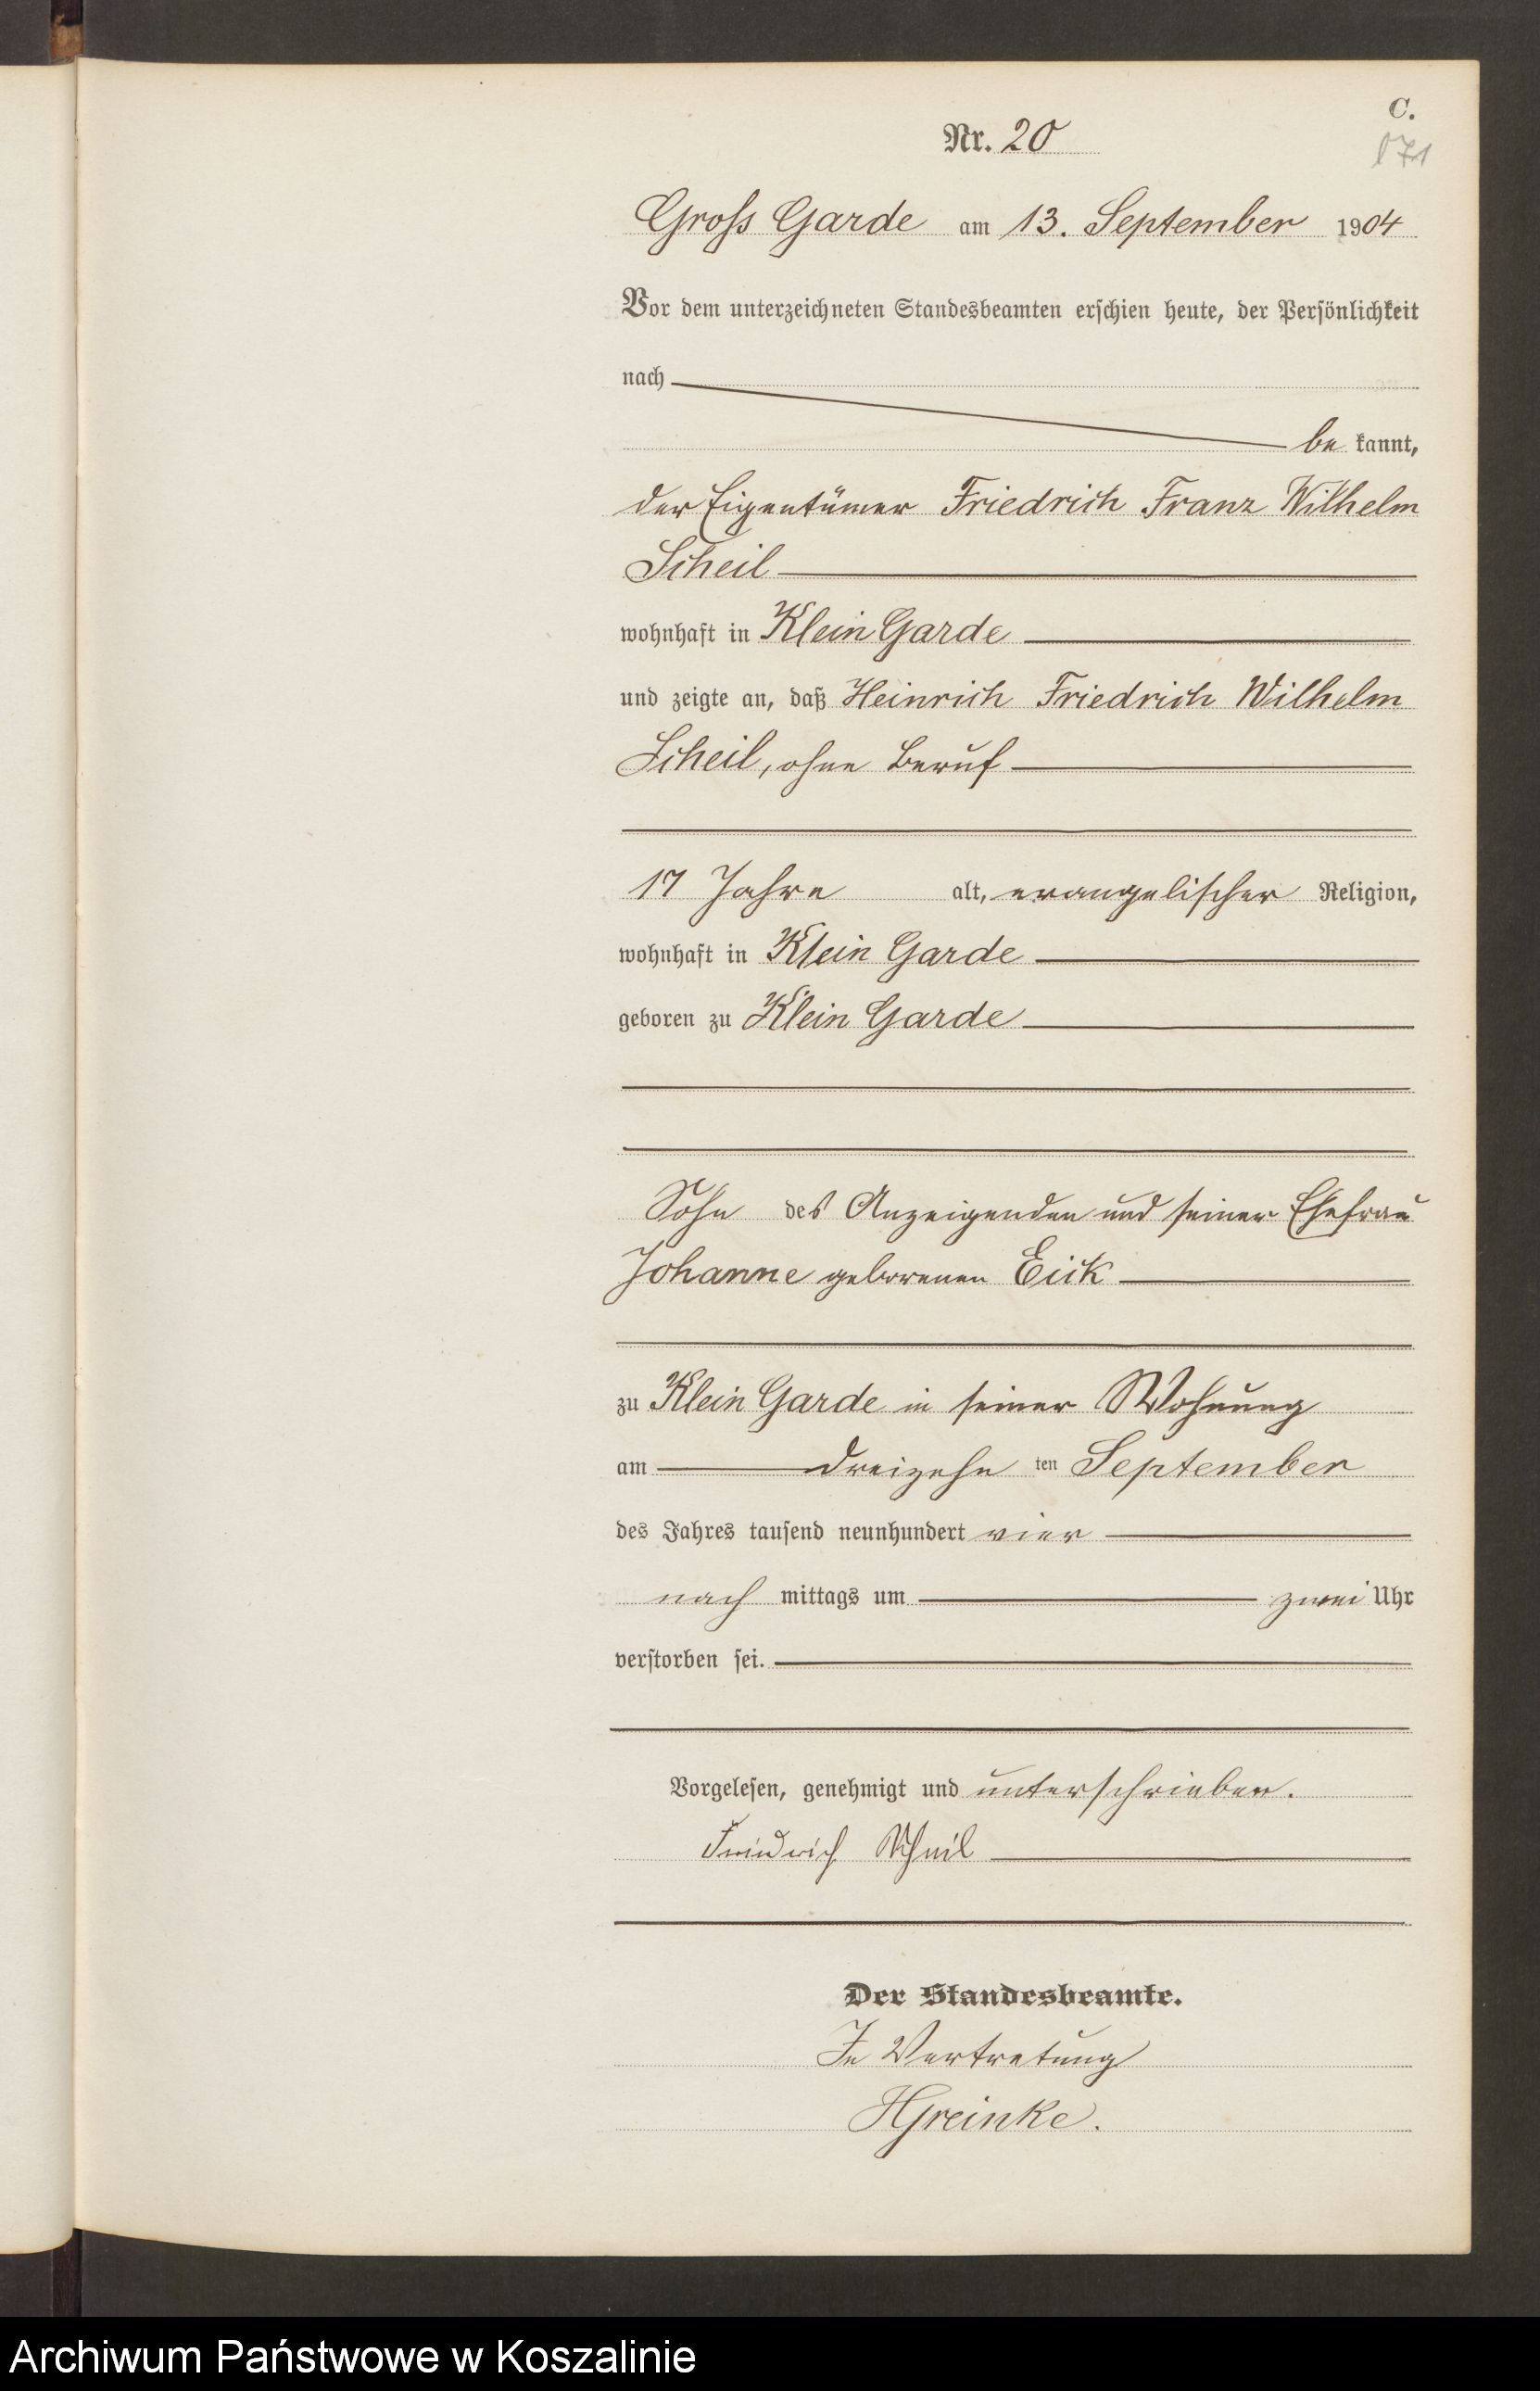 C.
Nr. 20
171
Gross Garde am 13. September 1904
Vor dem unterzeichneten Standesbeamten erschien heute, der Persönlichkeit
nach
be kannt,
der Eigentümer Friedrich Franz Wilhelm
Scheil
wohnhaft in Klein Garde
und zeigte an, daß Heinrich Friedrich Wilhelm
Scheil, ohne Beruf
17 Jahre alt, evangelischer Religion,
wohnhaft in Klein Garde
geboren zu Klein Garde
Sohn des Anzeigenden und seiner Ehefrau
Johanne geborenen Eick
zu Klein Garde in seiner Wohnung
am dreizehn ten September
des Jahres tausend neunhundert vier
nach mittags um zwei Uhr
verstorben sei.
Vorgelesen, genehmigt und unterschrieben.
Friedrich Scheil
Der Standesbeamte.
In Vertretung
HGreinke.
Archiwum Państwowe w Koszalinie